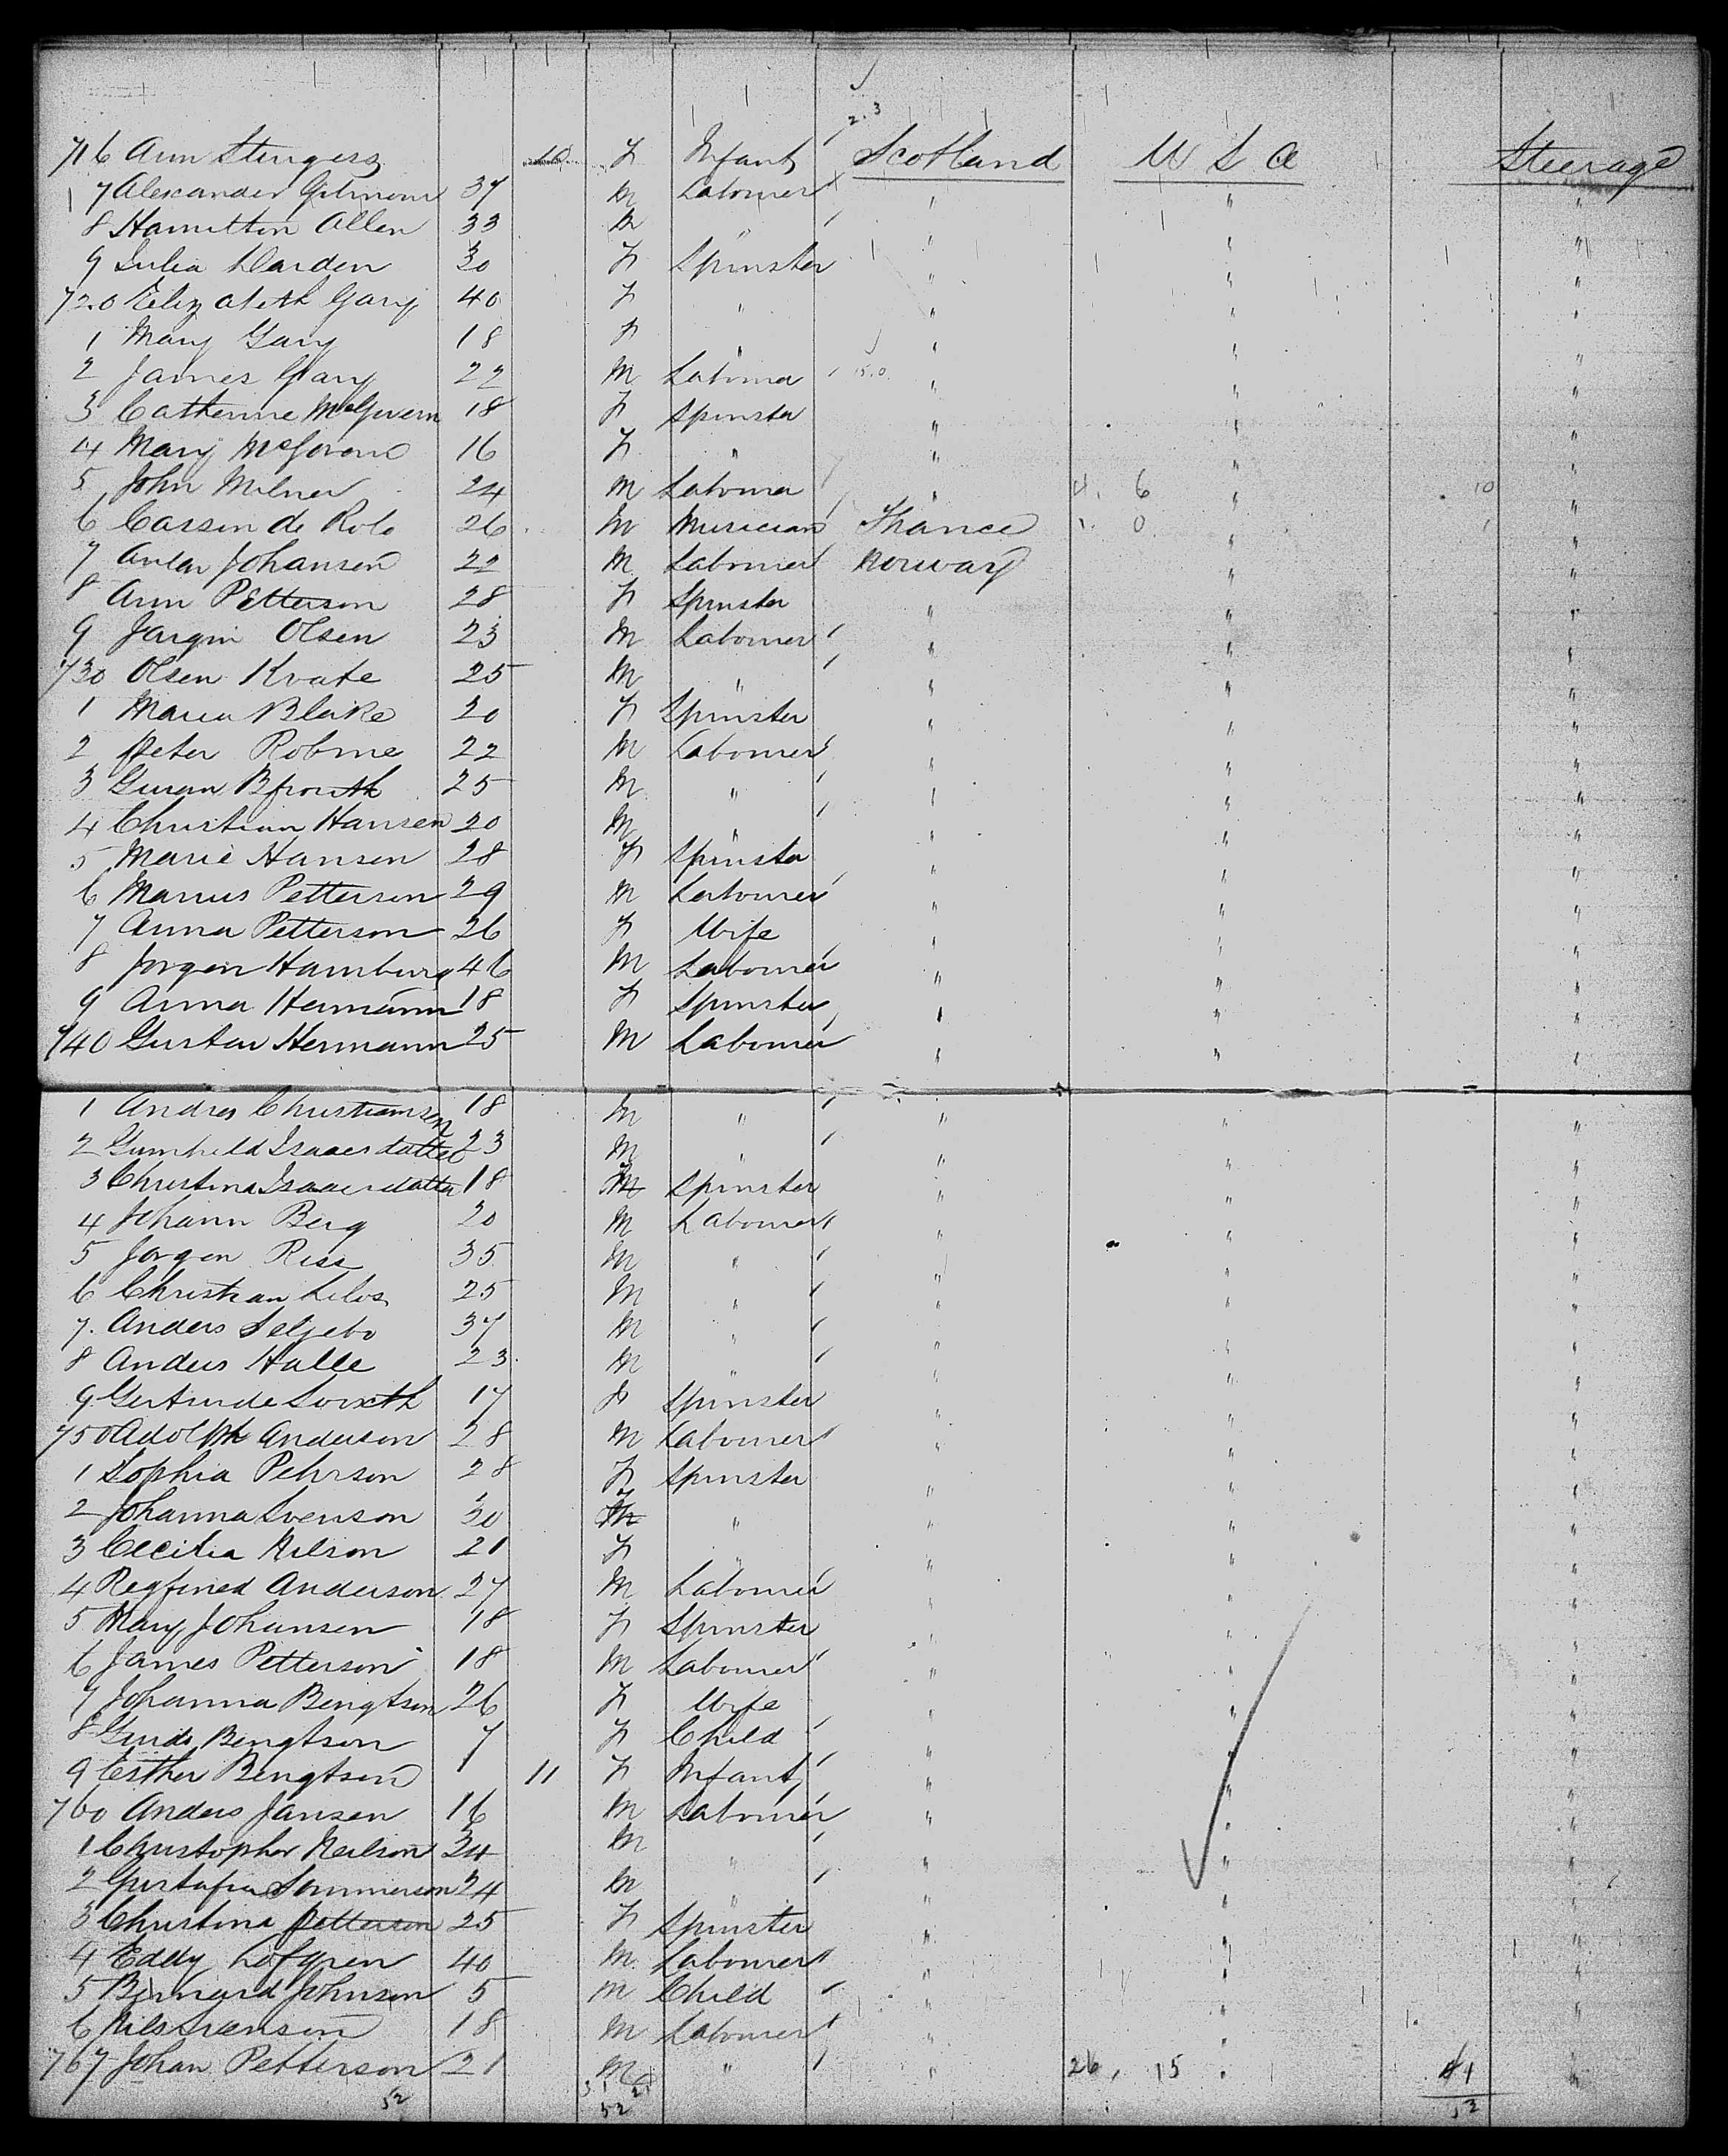 2.3
716 Ann Sturgess 10 F Infant Scotland U S A Steerage
7 Alexander Gilmour 37 M Labourer " " "
8 Hamilton Allen 33 M " " " "
9 Julia Darden 30 F Spinster " " "
720 Elizabeth Gary 40 F " " " "
1 Mary Gary 18 F " " " "
2 James Gary 22 M Labourer " " "
3 Catherine McGovern 18 F Spinster " " "
4 Mary McGovern 16 F " " " "
5 John Milner 24 M Labourer " 4. 6 " 10 "
6 Cassen de Rolo 26 M Musician France 1. 0 " 1 "
7 Anton Johansen 22 M Labourer Norway " "
8 Ann Petterson 28 F Spinster " " "
9 Jorgin Olsen 23 M Labourer " " "
730 Olsen Kvate 25 M " " " "
1 Maria Blake 20 F Spinster " " "
2 Peter Robme 22 M Labourer " " "
3 25 M " " " "
4 Christian Hansen 20 M " " " "
5 Marie Hansen 28 F Spinster " " "
6 Marius Petterson 29 M Labourer " " "
7 Anna Petterson 26 F Wife " " "
8 Jorgen Hamburg 46 M Labourer " " "
9 Anna Hermann 18 F Spinster " " "
740 Gustav Hermann 25 M Labourer " " "
1 Andres Christiansen 18 M " " " "
2 Gunhild Isaacsdatter 23 M " " " "
3 Christina Isaacsdatter 18 F Spinster " " "
4 Johann Berg 20 M Labourer " " "
5 Jorgen Riss 35 M " " " "
6 Christian Lilos 25 M " " " "
7 Anders Seljebo 37 M " " " "
8 Anders Halle 23 M " " " "
9 Gertrude 17 F Spinster " " "
750 Adolph Anderson 28 M Labourer " " "
1 Sophia Pehrson 28 F Spinster " " "
2 Johanna Svenson 30 F " " " "
3 Cecilia Nilson 21 F " " " "
4 Anderson 27 M Labourer " " "
5 Mary Johansen 18 F Spinster " " "
6 James Petterson 18 M Labourer " " "
7 Johanna Bengtson 26 F Wife " " "
8 Bengtson 7 F Child " " "
9 Esther Bengtson 11 F Infant " " "
760 Anders Jansen 16 M Labourer " " "
1 Christopher Neilson 24 M " " " "
2 Gustafia Sommerson 24 M " " " "
3 Christina Petterson 25 F Spinster " " "
4 Eddy Lofgren 40 M Labourer " " "
5 Bernard Johnson 5 M Child " " "
6 Nils Svenson 18 M Labourer " " "
767 Johan Petterson 21 M " " 26, 15 " 41 "
52 31 21 52
52